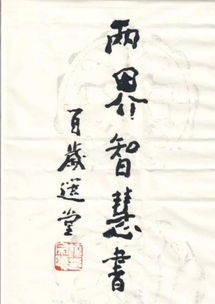 兩界智慧書
百歲選堂